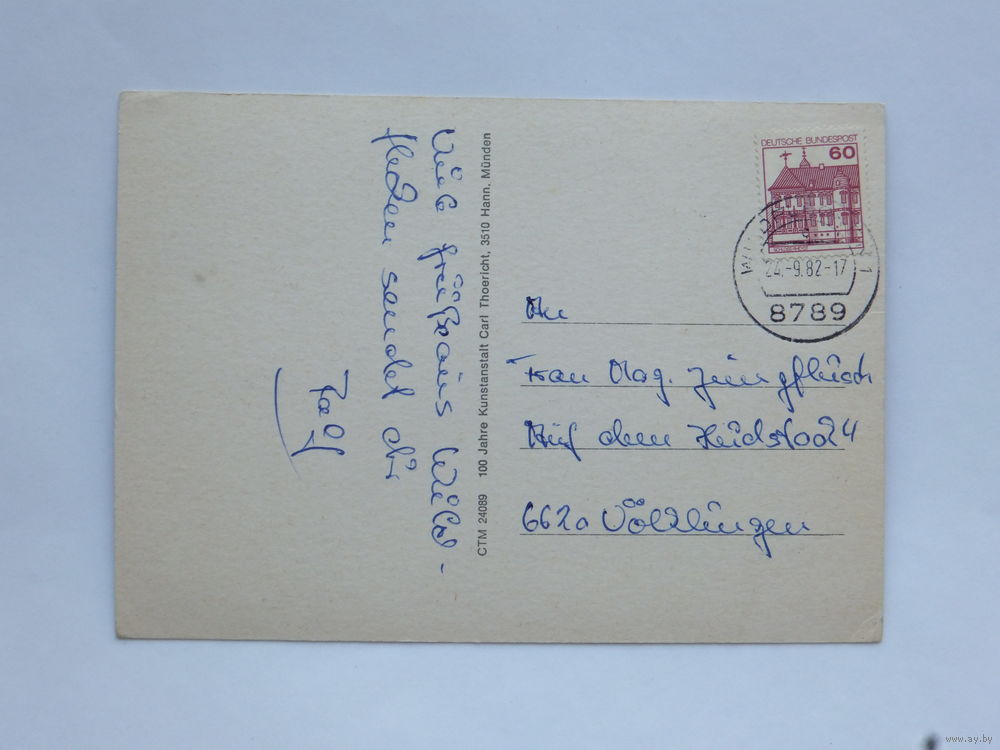 Viele Grüße aus Wild-
flecken sendet dir
Ralf
CTM 24089 100 Jahre Kunstanstalt Carl Thoericht, 3510 Hann. Münden
DEUTSCHE BUNDESPOST
60
24.-9.82-17
8789
An
Frau Mag. Jungfleisch
Auf dem Heidstock 24
6620 Völklingen
www.ay.by